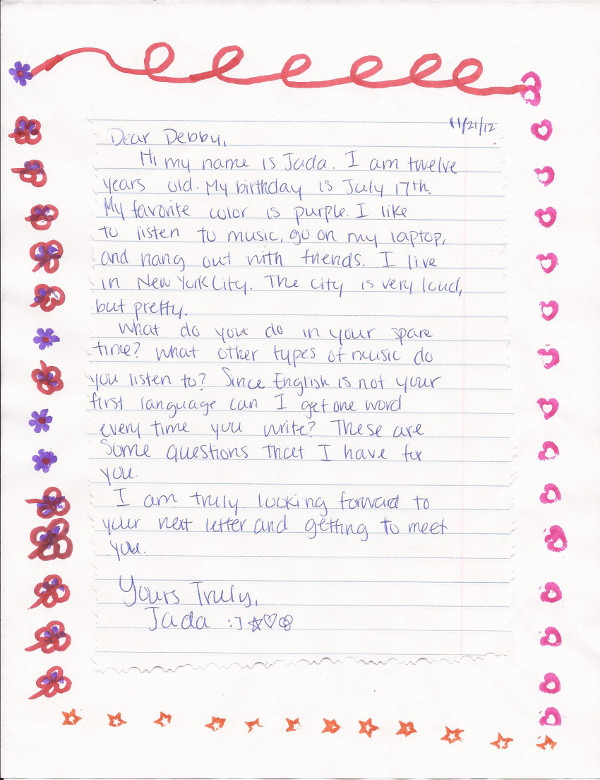 11/21/12
Dear Debby,
Hi my name is Jada. I am twelve
years old. My birthday is July 17th.
My favorite color is purple. I like
to listen to music, go on my laptop,
and hang out with friends. I live
in New York City. The city is very loud,
but pretty.
What do you do in your spare
time? What other types of music do
you listen to? Since English is not your
first language can I get one word
every time you write? These are
some questions that I have for
you.
I am truly looking forward to
your next letter and getting to meet
you.
Yours Truly,
Jada :]